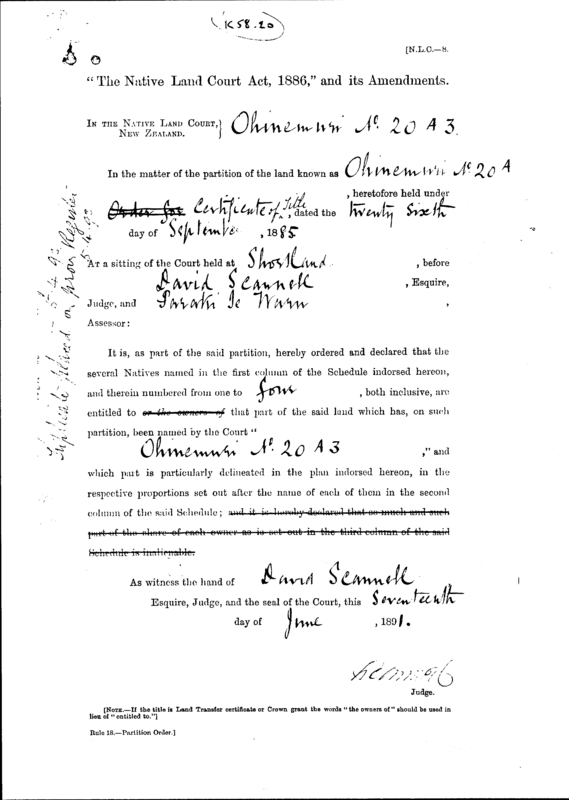 K58.20
[N.L.C.—8.
"The Native Land Court Act, 1886," and its Amendments.
In the Native Land Court,} Ohinemuri No. 20 A 3.
New Zealand.
In the matter of the partition of the land known as Ohinemuri No. 20 A
, heretofore held under
Order for Certificate of Title, dated the twenty sixth
day of September, 1885
At a sitting of the Court held at Shortland, before
David Scannell, Esquire,
Judge, and Paraki Te Waru,
Assessor:
It is, as part of the said partition, hereby ordered and declared that the
several Natives named in the first column of the Schedule indorsed hereon,
and therein numbered from one to four, both inclusive, are
entitled to or the owners of that part of the said land which has, on such
partition, been named by the Court "
Ohinemuri No. 20 A 3 ," and
which part is particularly delineated in the plan indorsed hereon, in the
respective proportions set out after the name of each of them in the second
column of the said Schedule; and it is hereby declared that so much and such
part of the share of each owner as is set out in the third column of the said
Schedule is inalienable.
As witness the hand of David Scannell
Esquire, Judge, and the seal of the Court, this Seventeenth
day of June, 1891.
Judge.
[Note.—If the title is Land Transfer certificate or Crown grant the words "the owners of" should be used in
lieu of "entitled to."]
Rule 18.—Partition Order.]
Triplicate placed on prov Register
5.4.93